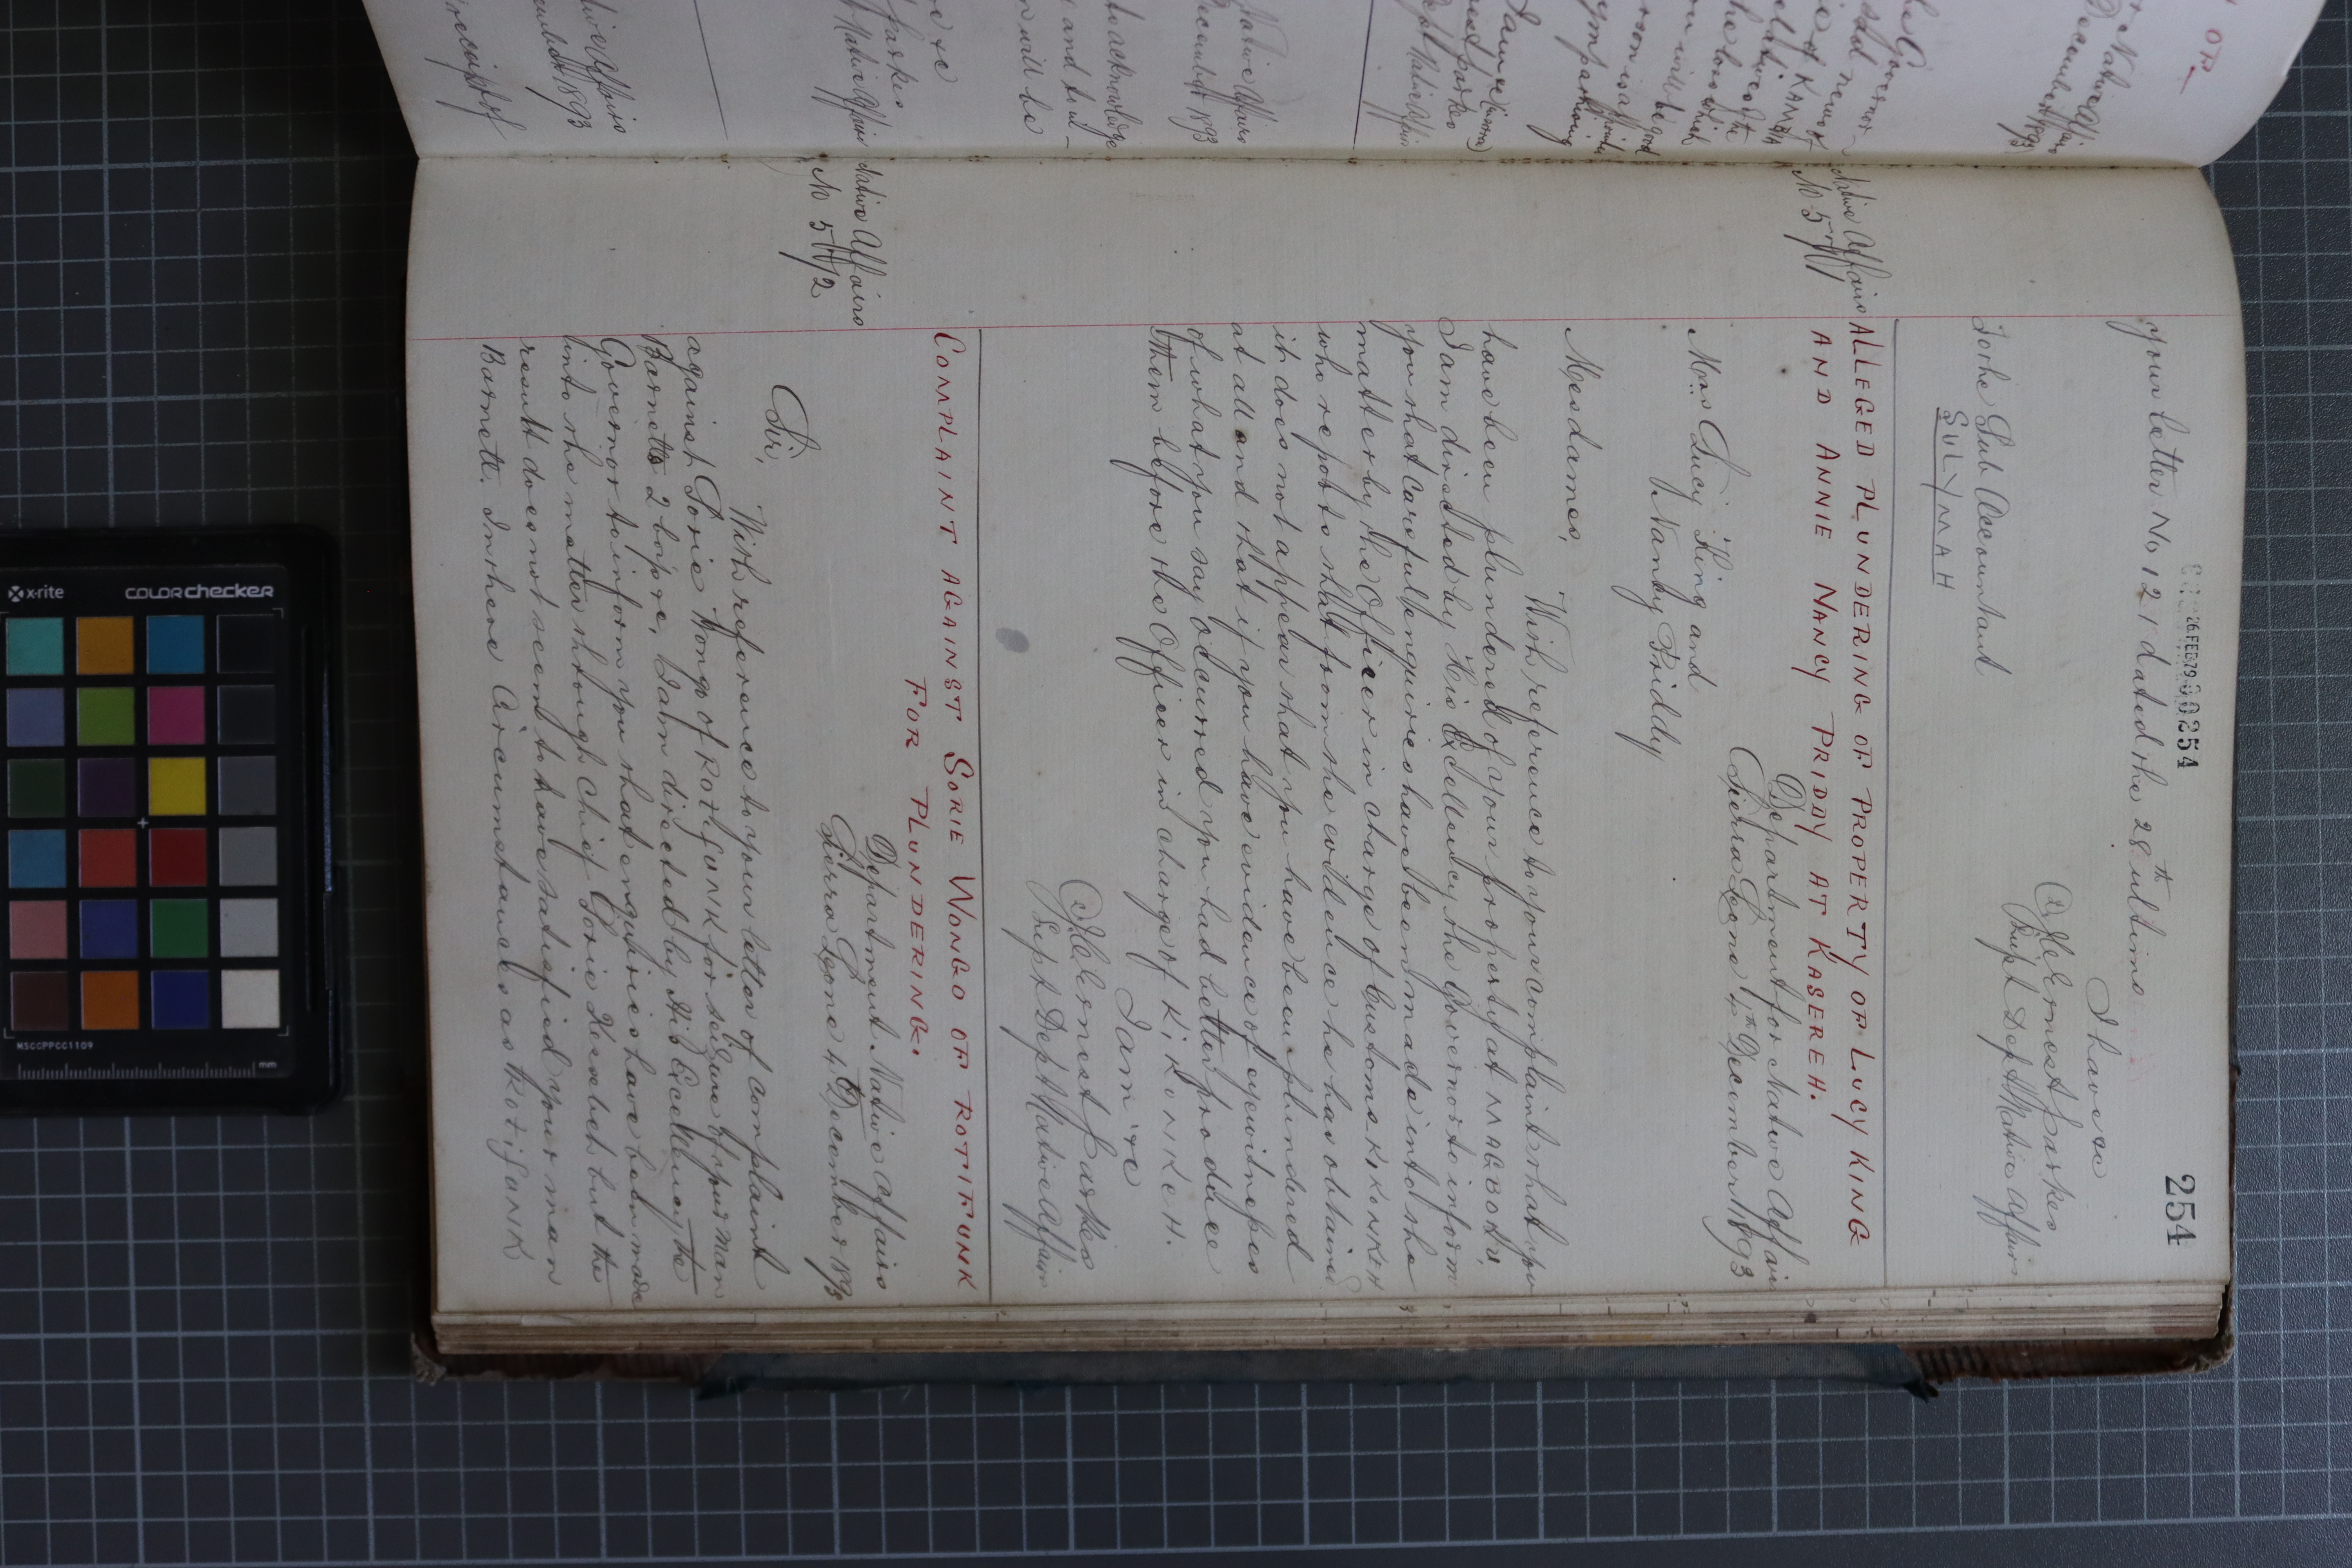 254
26 FEB 79 00254
your letter No 121 dated the 28th ultimo
I have &c
(s) J C Ernest Parkes
Supt Dept Native Affairs
To the Sub Accountant
SULYMAH
Native Affairs
No 571
ALLEGED PLUNDERING OF PROPERTY OF LUCY KING
AND ANNIE NANCY PRIDDY AT KASEREH.
Department for Native Affairs
Sierra Leone 4th December 1893
Mrs Lucy King and
" Nancy Priddy
Mesdames,
With reference to your complaint that you
have been plundered of your property at MAGBOOTU,
I am directed by His Excellency the Governor to inform
you that careful enquiries have been made into the
matter by the Officer in charge of Customs KIKONKEH
who reports that from the evidence he has obtained
it does not appear that you have been plundered
at all and that if you have evidence of eyewitnesses
of what you say occurred you had better produce
them before the Officer in charge of KIKONKEH.
I am &c
(s) J C Ernest Parkes
Supt Dept Native Affairs
COMPLAINT AGAINST SORIE WONGO OF ROTIFUNK
FOR PLUNDERING.
Native Affairs
No 572
Department Native Affairs
Sierra Leone 4th December 1893
Sir,
With reference to your letter of complaint
against Sorie Wongo of ROTIFUNK for seizure of your man
Barnett's 2 boxes, I am directed by His Excellency the
Governor to inform you that enquiries have been made
into the matter through Chief Sorie Kessebeh but the
result does not seem to have satisfied your man
Barnett. In these circumstances as ROTIFUNK
x-rite
colorchecker
MSCCPPCC1109
mm